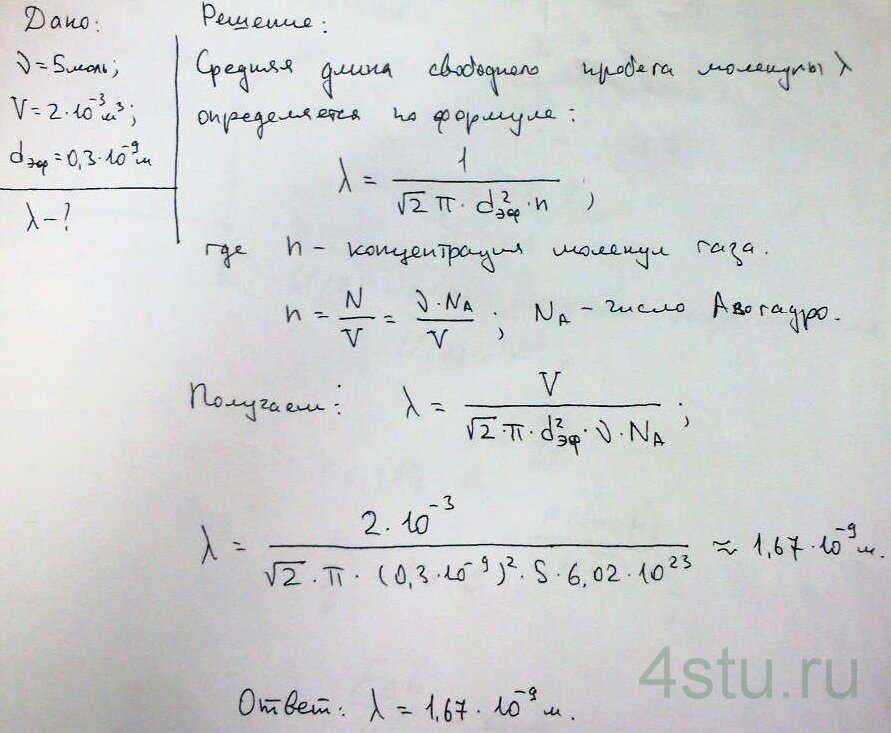 Дано:
ν = 5 моль;
V = 2·10⁻³ м³;
dэф = 0,3·10⁻⁹ м
λ - ?
Решение:
Средняя длина свободного пробега молекулы λ
определяется по формуле:
λ = 1 / (√2 π · d²эф · n) ;
где n - концентрация молекул газа.
n = N/V = ν·NA/V ; NA - число Авогадро.
Получаем: λ = V / (√2·π·d²эф·ν·NA) ;
λ = 2·10⁻³ / (√2·π·(0,3·10⁻⁹)²·5·6,02·10²³) ≈ 1,67·10⁻⁹ м.
4stu.ru
Ответ: λ = 1,67·10⁻⁹ м.